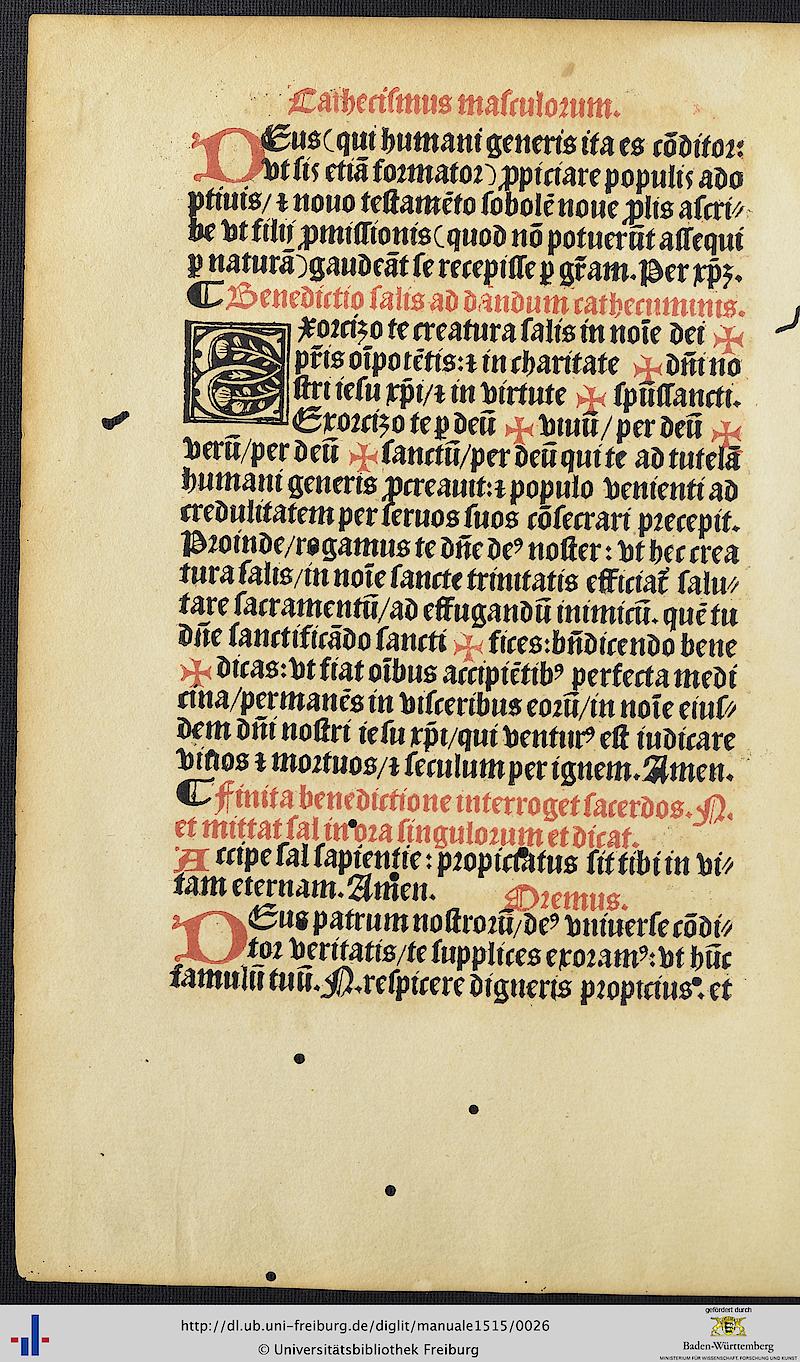 Cathecismus masculorum.
DEus (qui humani generis ita es cōditor:
vt sis etiā formator) ꝓpiciare populis ado
ptiuis / ⁊ nouo testamēto sobolē noue ꝓlis ascri⸗
be vt filij ꝓmissionis (quod nō potuerūt assequi
ꝑ naturā) gaudeāt se recepisse ꝑ gr̄am. Per xp̄ꝫ.
¶ Benedictio salis ad dandum cathecuminis.
Exorcizo te creatura salis in noīe dei ✠
pr̄is oīpotētis: ⁊ in charitate ✠ dn̄i no
stri iesu xp̄i / ⁊ in virtute ✠ spūssancti.
Exorcizo te ꝑ deū ✠ viuū / per deū ✠
verū / per deū ✠ sanctū / per deū qui te ad tutelā
humani generis ꝓcreauit: ⁊ populo venienti ad
credulitatem per seruos suos cōsecrari precepit.
Proinde / rogamus te dn̄e deꝰ noster: vt hec crea
tura salis / in noīe sancte trinitatis efficiat̄ salu⸗
tare sacramentū / ad effugandū inimicū. quē tu
dn̄e sanctificādo sancti ✠ fices: bn̄dicendo bene
✠ dicas: vt fiat oībus accipiētibꝰ perfecta medi
cina / permanēs in visceribus eorū / in noīe eius⸗
dem dn̄i nostri iesu xp̄i / qui venturꝰ est iudicare
viuos ⁊ mortuos / ⁊ seculum per ignem. Amen.
¶ Finita benedictione interroget sacerdos. N.
et mittat sal in ora singulorum et dicat.
Accipe sal sapientie: propiciatus sit tibi in vi⸗
tam eternam. Amen. Oremus.
DEus patrum nostrorū / deꝰ vniuerse cōdi⸗
tor veritatis / te supplices exoramꝰ: vt hūc
famulū tuū. N. respicere digneris propicius. et
http://dl.ub.uni-freiburg.de/diglit/manuale1515/0026
© Universitätsbibliothek Freiburg
gefördert durch
Baden-Württemberg
MINISTERIUM FÜR WISSENSCHAFT, FORSCHUNG UND KUNST